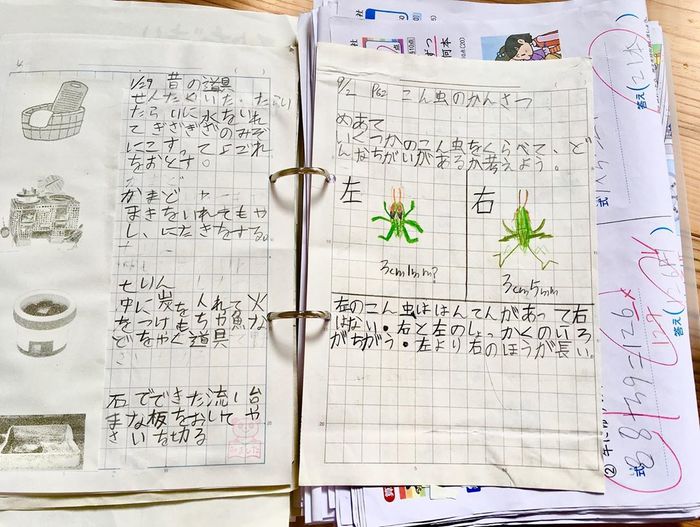 1/29 昔の道具
せんたくいた・たらい
たらいに水をいれ
てぎざぎざのみぞ
にこすってよごれ
をおとす。
かまど
まきをいれてもや
し、にたきをする。
七りん
中に炭を入れて火
をつけもちや魚な
どをやく道具
石でできた流し台
まな板をおいてや
さいを切る
9/2 P62 こん虫のかんさつ
めあて
いくつかのこん虫をくらべて、ど
んなちがいがあるか考えよう。
左
右
3cm1mm?
3cm5mm
左のこん虫ははんてんがあって右
はない・右と左のしょっかくのいろ
がちがう・左より右のほうが長い。
何本
答え
式
答え
式
②